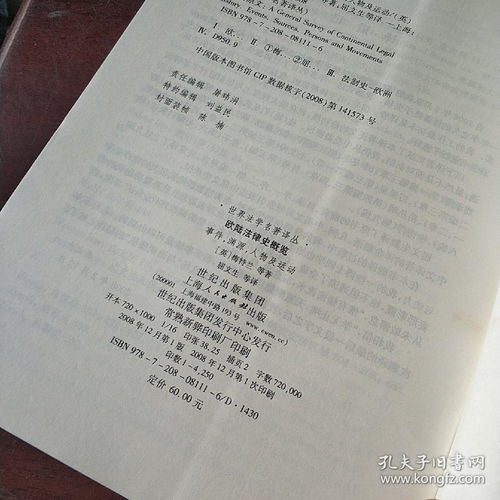 人物及运动/(英)
等著;屈文生等译.—上海:
名著译丛)
原文: A General Survey of Continental Legal
History, Events, Sources, Persons and Movements
ISBN 978-7-208-08111-6
Ⅰ 欧… Ⅱ ①梅…②屈… Ⅲ. 法制史-欧洲
Ⅳ. D950.9
中国版本图书馆CIP数据核字(2008)第141573号
责任编辑 屠玮涓
特约编辑 刘益民
封面装帧 陈 楠
·世界法学名著译丛·
欧陆法律史概览
事件,渊源,人物及运动
[英]梅特兰 等著
屈文生 等译
世纪出版集团
上海人民出版社出版
(200001 上海福建中路193号 www.ewen.cc)
世纪出版集团发行中心发行
常熟新骅印刷厂印刷
开本 720×1000 1/16 印张 38.25 插页 2 字数 720,000
2008年12月第1版 2008年12月第1次印刷
印数 1-4,250
ISBN 978-7-208-08111-6/D·1430
定价 60.00元
孔夫子旧书网
www.kongfz.com